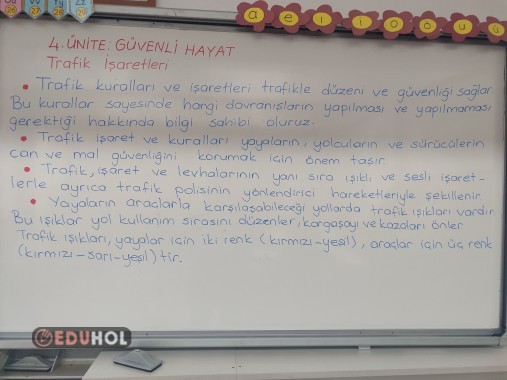 Uu 26
Vv 27
Yy 28
Zz 29
a e ı i o ö u ü
4. ÜNİTE: GÜVENLİ HAYAT
Trafik İşaretleri
• Trafik kuralları ve işaretleri trafikte düzeni ve güvenliği sağlar.
Bu kurallar sayesinde hangi davranışların yapılması ve yapılmaması
gerektiği hakkında bilgi sahibi oluruz.
• Trafik işaret ve kuralları yayaların, yolcuların ve sürücülerin
can ve mal güvenliğini korumak için önem taşır.
• Trafik, işaret ve levhalarının yanı sıra ışıklı ve sesli işaret-
lerle ayrıca trafik polisinin yönlendirici hareketleriyle şekillenir.
• Yayaların araçlarla karşılaşabileceği yollarda trafik ışıkları vardır
Bu ışıklar yol kullanım sırasını düzenler, kargaşayı ve kazaları önler
Trafik ışıkları, yayalar için iki renk (kırmızı-yeşil), araçlar için üç renk
(kırmızı-sarı-yeşil)tir.
EDUHOL